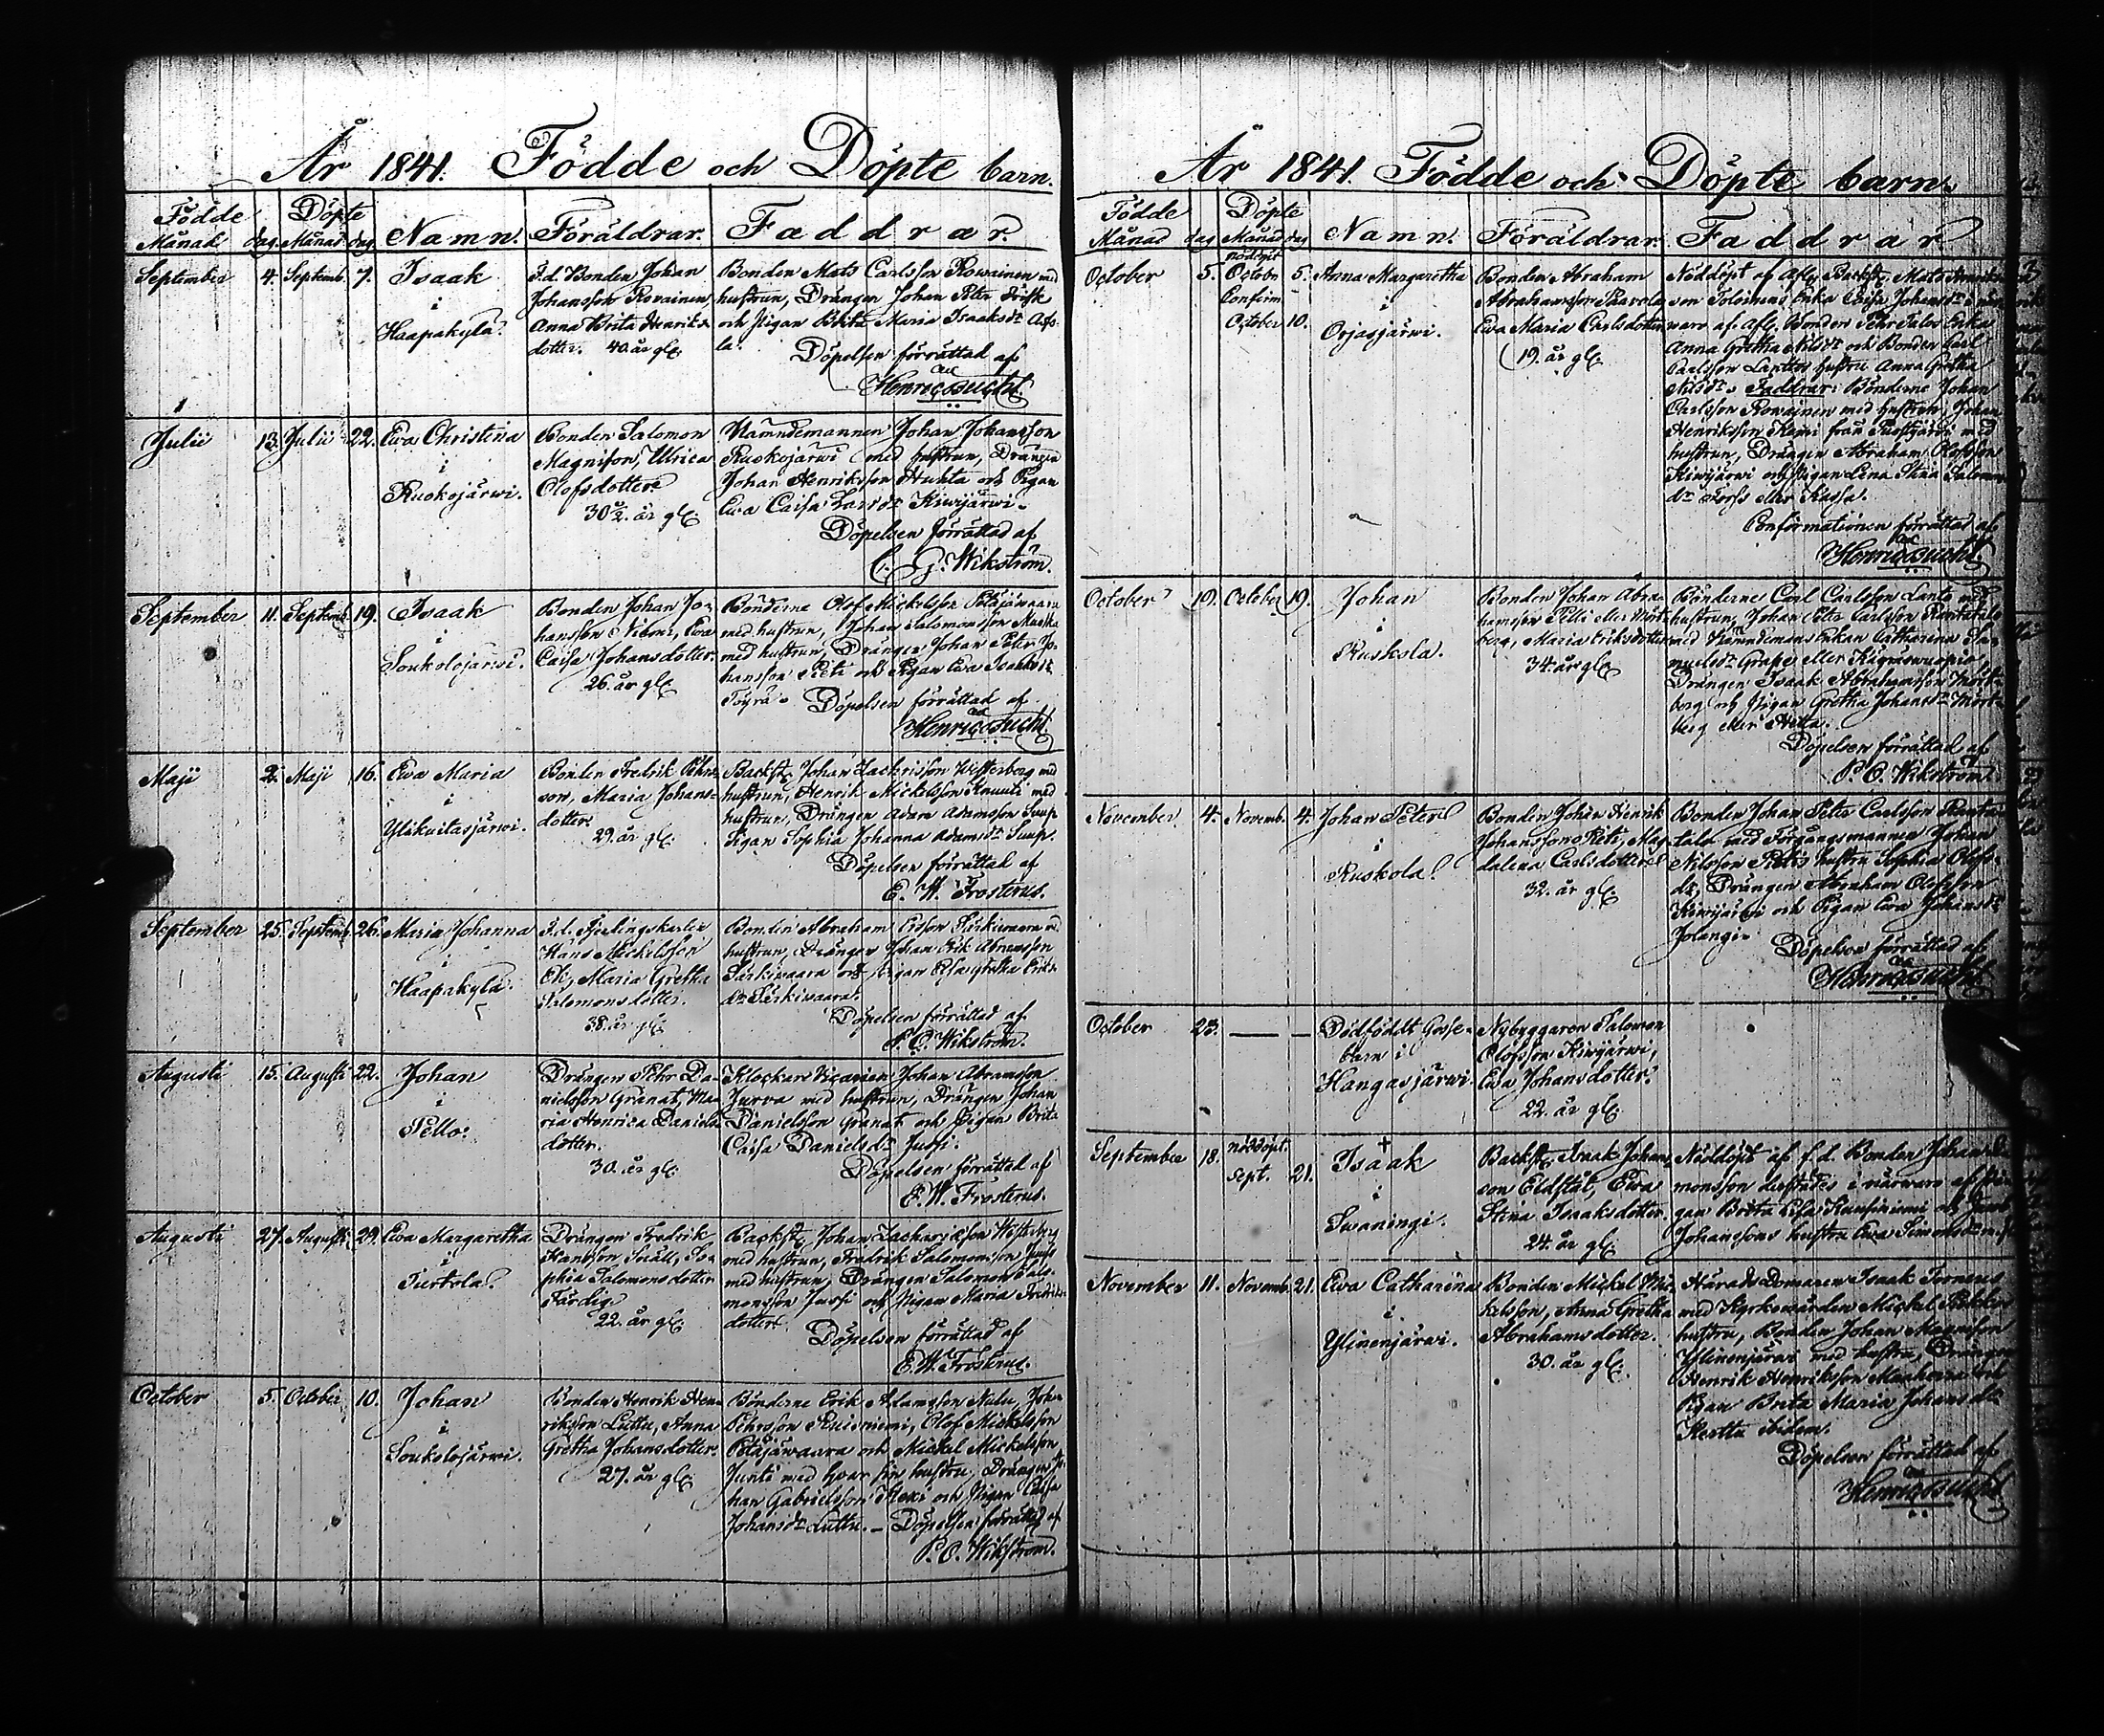 År 1841. Födde och Döpte barn.
Födde Döpte
Månad dag. Månad dag. Namn. Föräldrar. Faddrar.
September 4. Septemb. 7. Isaak
i
Haapakylä.
F.d. Bonden Johan
Johansson Rovainen
Anna Brita Henriks
dotter. 40. år gl.
Bonden Mats Carlsson Rowainen med
hustrun, Drängen Johan Peter
och Pigan Brita Maria Isaaksdr
la. Döpelsen förrättad af
Henric Bucht.
Julii 13. Julii 22. Ewa Christina
i
Ruokojärwi.
Bonden Salomon
Magnison, Ulrica
Olofsdotter.
30 1/2. år gl.
Nämndemannen Johan Johansson
Ruokojärwi med hustrun, Drängen
Johan Henriksson Huhta och Pigan
Ewa Caisa Larsdr Kiwijärwi.
Döpelsen förrättad af
C. G. Wikström.
September 11. Septemb. 19. Isaak
i
Soukolojärwi.
Bonden Johan Jo-
hansson Niemi, Ewa
Caisa Johansdotter.
26. år gl.
Bönderne Olof Mickelsson Petäjäwaara
med hustrun, Johan Salomonsson
med hustrun, Drängen Johan Peter Jo-
hansson Pieti och Pigan Ewa Isaksdr
Töyrä. Döpelsen förrättad af
Henric Bucht.
Maji 2. Maji 16. Ewa Maria
i
Ylikuitasjärwi.
Bonden Fredrik Pehrs-
son, Maria Johans-
dotter.
29. år gl.
Backst. Johan Zachrisson Westerberg med
hustrun, Henrik Mickelsson Knuuti med
hustrun, Drängen Adam Adamsson Suup
Pigan Sophia Johanna Adamsdr Suup.
Döpelsen förrättad af
E. W. Frosterus.
September 25. Septemb. 26. Maria Johanna
i
Haapakylä.
F.d.
Hans Mickelsson
Maria Gretha
Salomonsdotter.
38. år gl.
Bonden Abraham Ersson Särkiwaara med
hustrun, Drängen Johan Erik Abramsson
Särkiwaara och Pigan Elsa Gretha Eriks
dr Särkiwaara.
Döpelsen förrättad af
P. O. Wikström.
Augusti 15. Augusti 22. Johan
i
Pello.
Drängen Pehr Da-
nielsson Granat, Ma-
ria Henrica Daniels-
dotter.
30. år gl.
Klockare Vicarien Johan Abramsson
Jurva med hustrun, Drängen Johan
Danielsson Granat och Pigan Brita
Caisa Danielsdr Jussi.
Döpelsen förrättad af
E. W. Frosterus.
Augusti 27. Augusti 29. Ewa Margaretha
i
Turtola.
Drängen Fredrik
Hansson Snäll, So-
phia Salomonsdotter
Färdig.
22. år gl.
Backst. Johan Zachariasson Westerberg
med hustrun, Fredrik Salomonsson Jussi
med hustrun, Drängen Salomon Salo-
monsson Jussi och Pigan Maria Fredriks
dotter.
Döpelsen förrättad af
E. W. Frosterus.
October 5. October 10. Johan
i
Soukolojärwi.
Bonden Henrik Hen-
riksson Luttu, Anna
Gretha Johansdotter.
27. år gl.
Bönderne Erik Adamsson Nulu, Johan
Pehrsson Ruisniemi, Olof Mickelsson
Petäjäwaara och Mickel Mickelsson
Junti med hvar sin hustru, Drängen Jo-
han Gabrielsson och Pigan Caisa
Johansdr Luttu. – Döpelsen förrättad af
P. O. Wikström.
År 1841. Födde och Döpte barn.
Födde Döpte
Månad dag Månad dag Namn. Föräldrar. Faddrar
October 5. nöddöpt October 5. Confirm October 10. Anna Margaretha
i
Orjasjärwi.
Bonden Abraham
Abrahamsson Paavola
Ewa Maria Carlsdotter
19. år gl.
Nöddöpt af Afl. Backst. Mats
son Toloinens Enka Caisa Johansdr i när-
waro af Afl. Bonden Pehr Talos Enka
Anna Gretha Nilsdr och Bonden Carl
Carlsson Lanttos hustru Anna Gretha
Nilsdr. Faddrar: Bönderne Johan
Carlsson Rowainen med hustrun, Johan
Henriksson från med
hustrun, Drängen Abraham Olofsson
Kiwijärwi och Pigan Lena Stina Salomons
dr eller
Confirmationen förrättad af
Henric Bucht.
October 19. October 19. Johan
i
Ruskola.
Bonden Johan Abra-
hamsson Pelli eller Mört-
berg, Maria Eriksdotter
34. år gl.
Bönderne Carl Carlsson Lanto med
hustrun, Johan Peter Carlsson Rantatalo
med Nämndemans Enkan Catharina Sa-
muelsdr Grape eller
Drängen Isaak Abrahamsson Mört-
berg och Pigan Gretha Johansdr Mört-
berg eller Hietta.
Döpelsen förrättad af
P. O. Wikström.
November 4. Novemb. 4. Johan Peter
i
Ruskola.
Bonden Johan Henrik
Johansson Pieti, Mag-
dalena Carlsdotter
32. år gl.
Bonden Johan Peter Carlsson Ranta-
talo med Förgångsmannen Johan
Nilsson Pietis hustru Sophia Olofs-
dr, Drängen Abraham Olofsson
Kiwijärwi och Pigan Ewa Johansdr
Jolangi.
Döpelsen förrättad af
Henric Bucht.
October 23. — — Dödfödt Gosse-
barn i
Hangasjärwi
Nybyggaren Salomon
Olofsson Kiwijärwi,
Ewa Johansdotter.
22. år gl.
September 18. nöddöpt. Sept. 21. Isaak
i
Swaningi.
Backst. Isaak Johans-
son Eldstål, Ewa
Stina Isaaksdotter.
24. år gl.
Nöddöpt af f.d. Bonden Johan
monsson i närwaro af Pi-
gan Brita Elsa Kausiniemi och
Johanssons hustru Ewa Simonsdr
November 11. Novemb. 21. Ewa Catharina
i
Ylinenjärwi.
Bonden Mickel Mic-
kelsson, Anna Gretha
Abrahamsdotter.
30. år gl.
Härads Domaren Isaak Tornerus
med Kyrkowärden Mickel
hustru, Bonden Johan Magnisson
Ylinenjärwi med hustru, Drängen
Henrik Henriksson och
Pigan Brita Maria Johansdr
Kerttu ibidem.
Döpelsen förrättad af
Henric Bucht